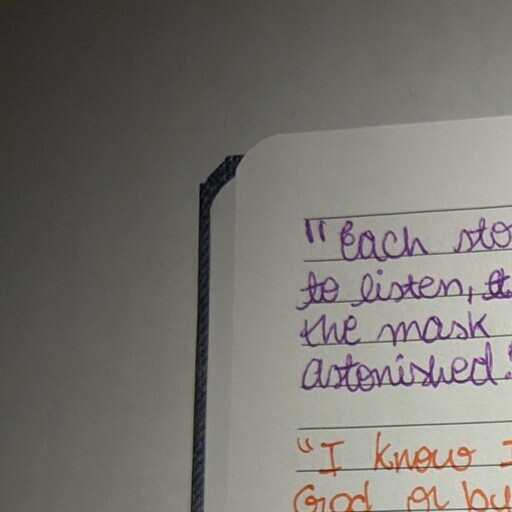 "Each sto
to listen,
the mask
astonished.
"I know I
God or by